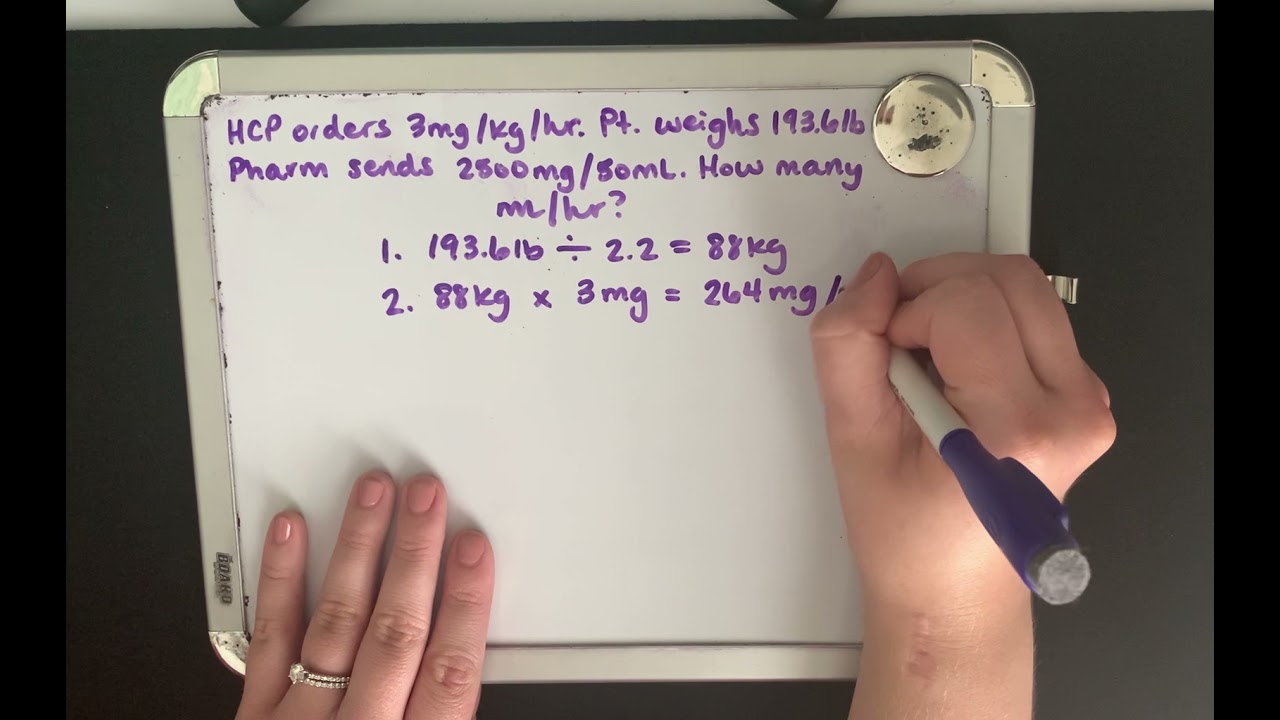 HCP orders 3mg/kg/hr. Pt. weighs 193.6lb
Pharm sends 2500mg/50mL. How many
mL/hr?
1. 193.6lb ÷ 2.2 = 88kg
2. 88kg x 3mg = 264mg/
BOARD